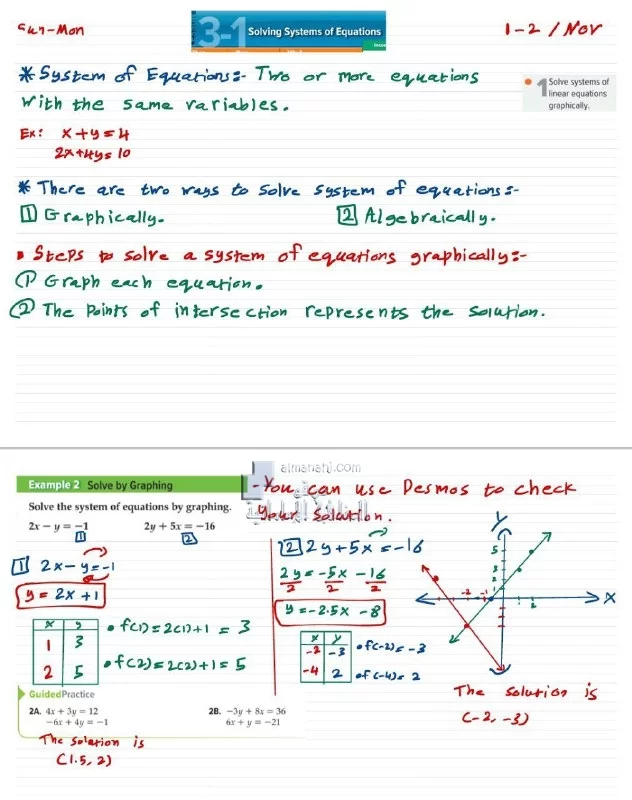 Sun-Mon
3-1 Solving Systems of Equations
1-2 / Nov
* System of Equations:- Two or more equations
with the same variables.
1 Solve systems of
linear equations
graphically.
Ex: x+y=4
2x+4y=10
* There are two ways to solve system of equations:-
1 Graphically.
2 Algebraically.
Steps to solve a system of equations graphically:-
1 Graph each equation.
2 The points of intersection represents the solution.
almanahj.com
Example 2 Solve by Graphing
- You can use Desmos to check
your solution.
Solve the system of equations by graphing.
2x − y = −1 2y + 5x = −16
1 2
1 2x - y = -1
y = 2x + 1
x y
1 3
2 5
• f(1) = 2(1)+1 = 3
• f(2) = 2(2)+1 = 5
2 2y + 5x = -16
2y = -5x - 16
2 2 2
y = -2.5x - 8
x y
-2 -3
-4 2
• f(-2) = -3
• f(-4) = 2
y
x
5
3
2
-2 -1
1 2
The solution is
(-2, -3)
GuidedPractice
2A. 4x + 3y = 12
−6x + 4y = −1
2B. −3y + 8x = 36
6x + y = −21
The solution is
(1.5, 2)